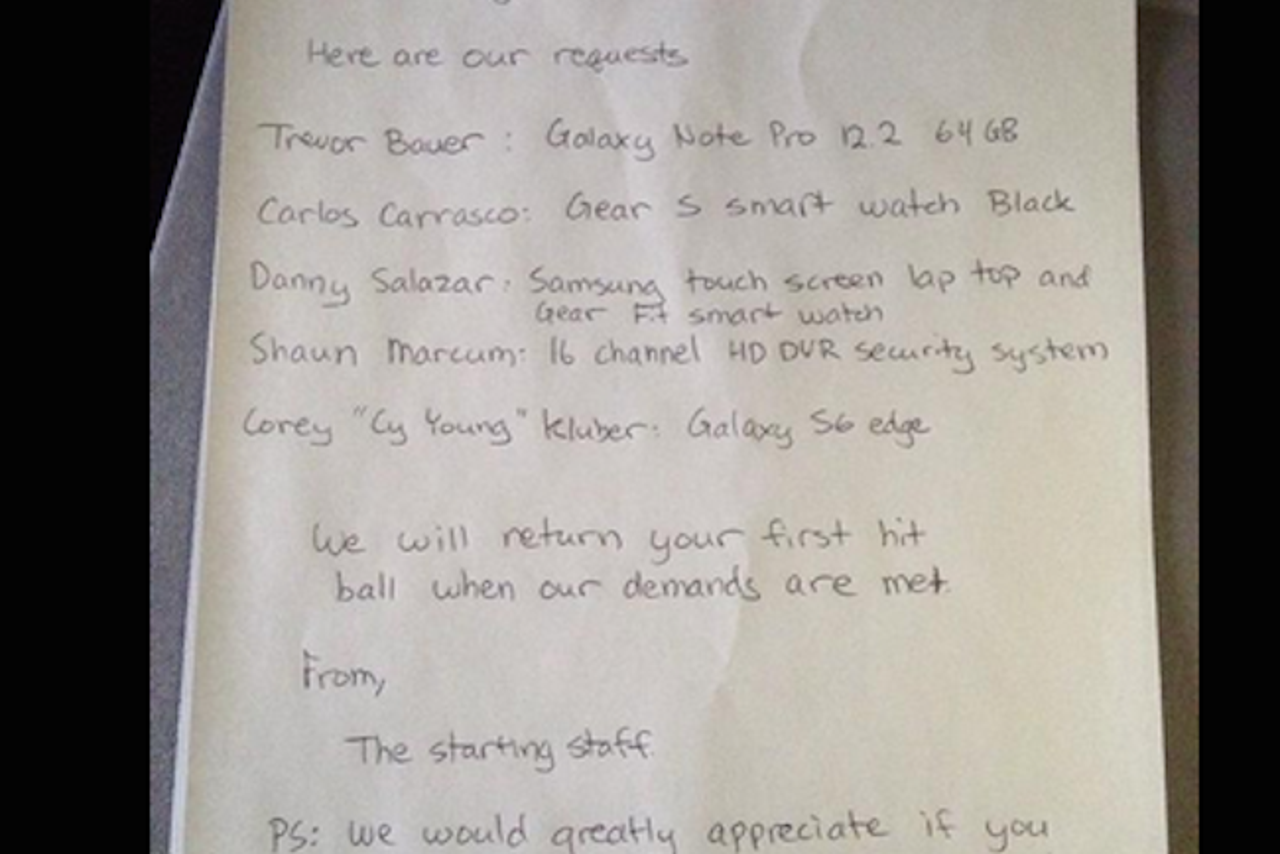 Here are our requests
Trevor Bauer: Galaxy Note Pro 12.2 64 GB
Carlos Carrasco: Gear S smart watch Black
Danny Salazar: Samsung touch screen lap top and
Gear Fit smart watch
Shaun Marcum: 16 channel HD DVR security system
Corey "Cy Young" Kluber: Galaxy S6 edge
We will return your first hit
ball when our demands are met.
From,
The starting staff
PS: we would greatly appreciate if you